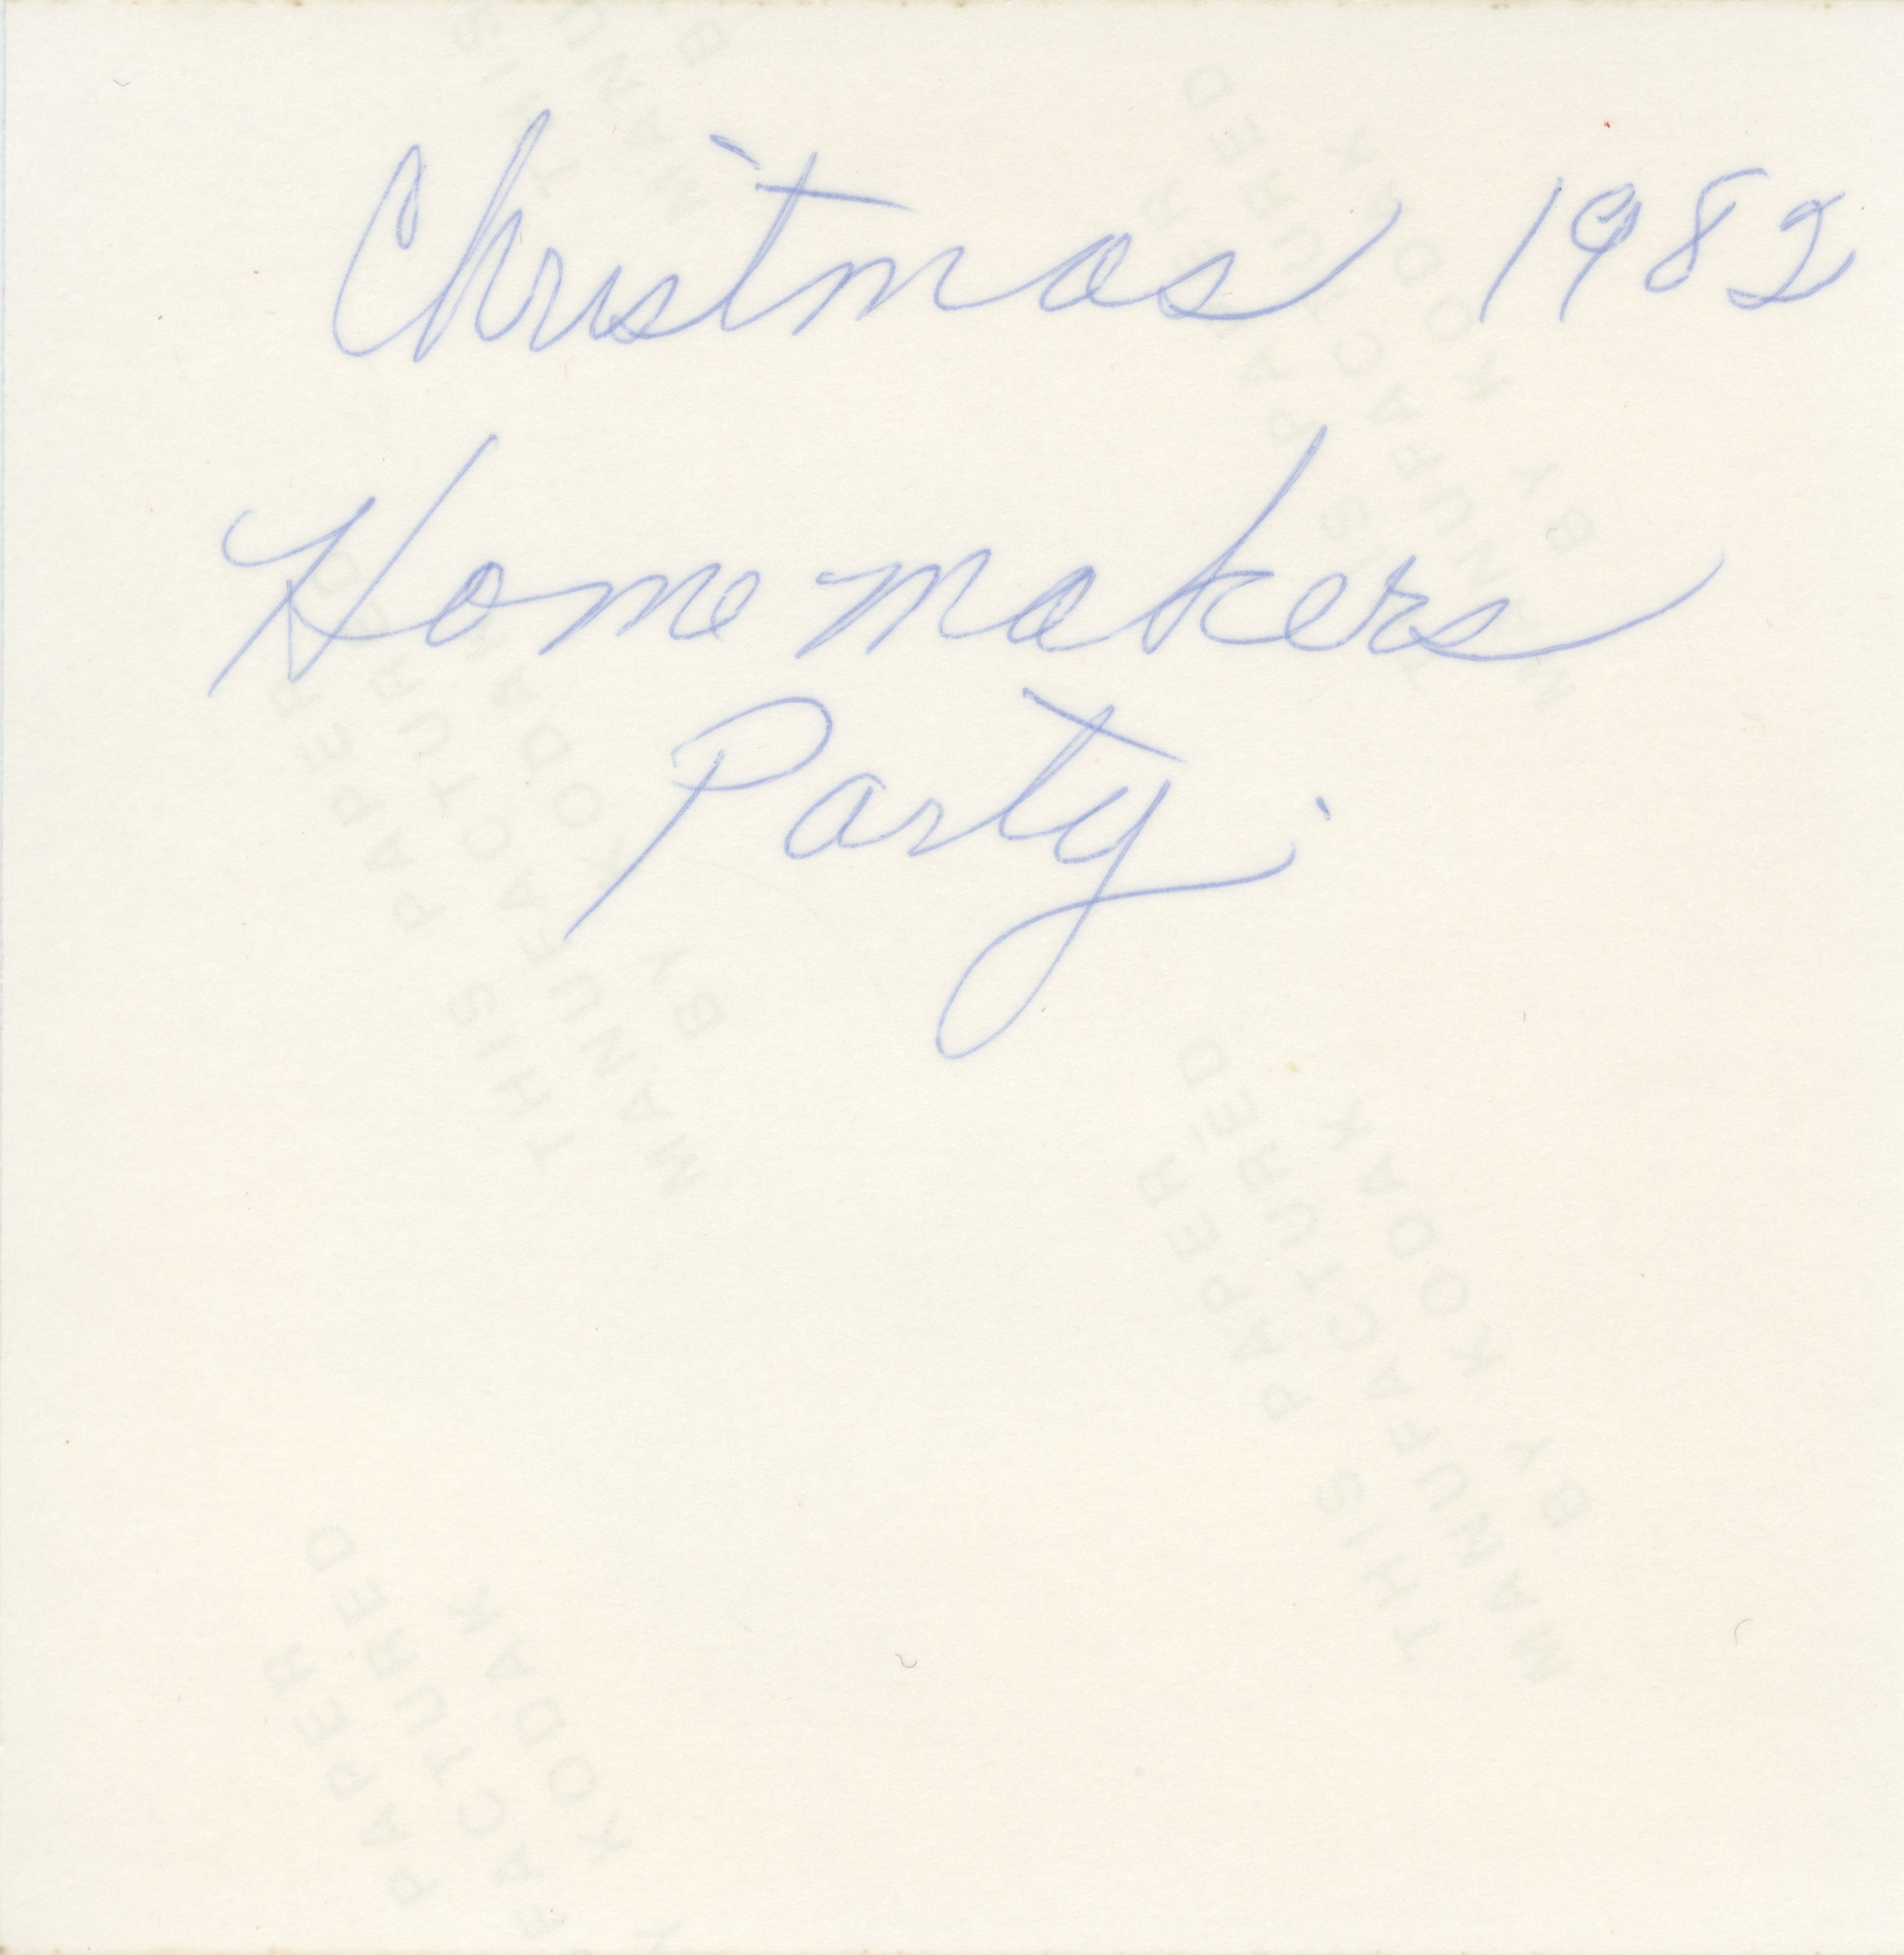 Christmas 1982
Homemakers
Party.
THIS PAPER
MANUFACTURED
BY KODAK
THIS PAPER
MANUFACTURED
BY KODAK
THIS PAPER
MANUFACTURED
BY KODAK
PAPER
FACTURED
Y KODAK